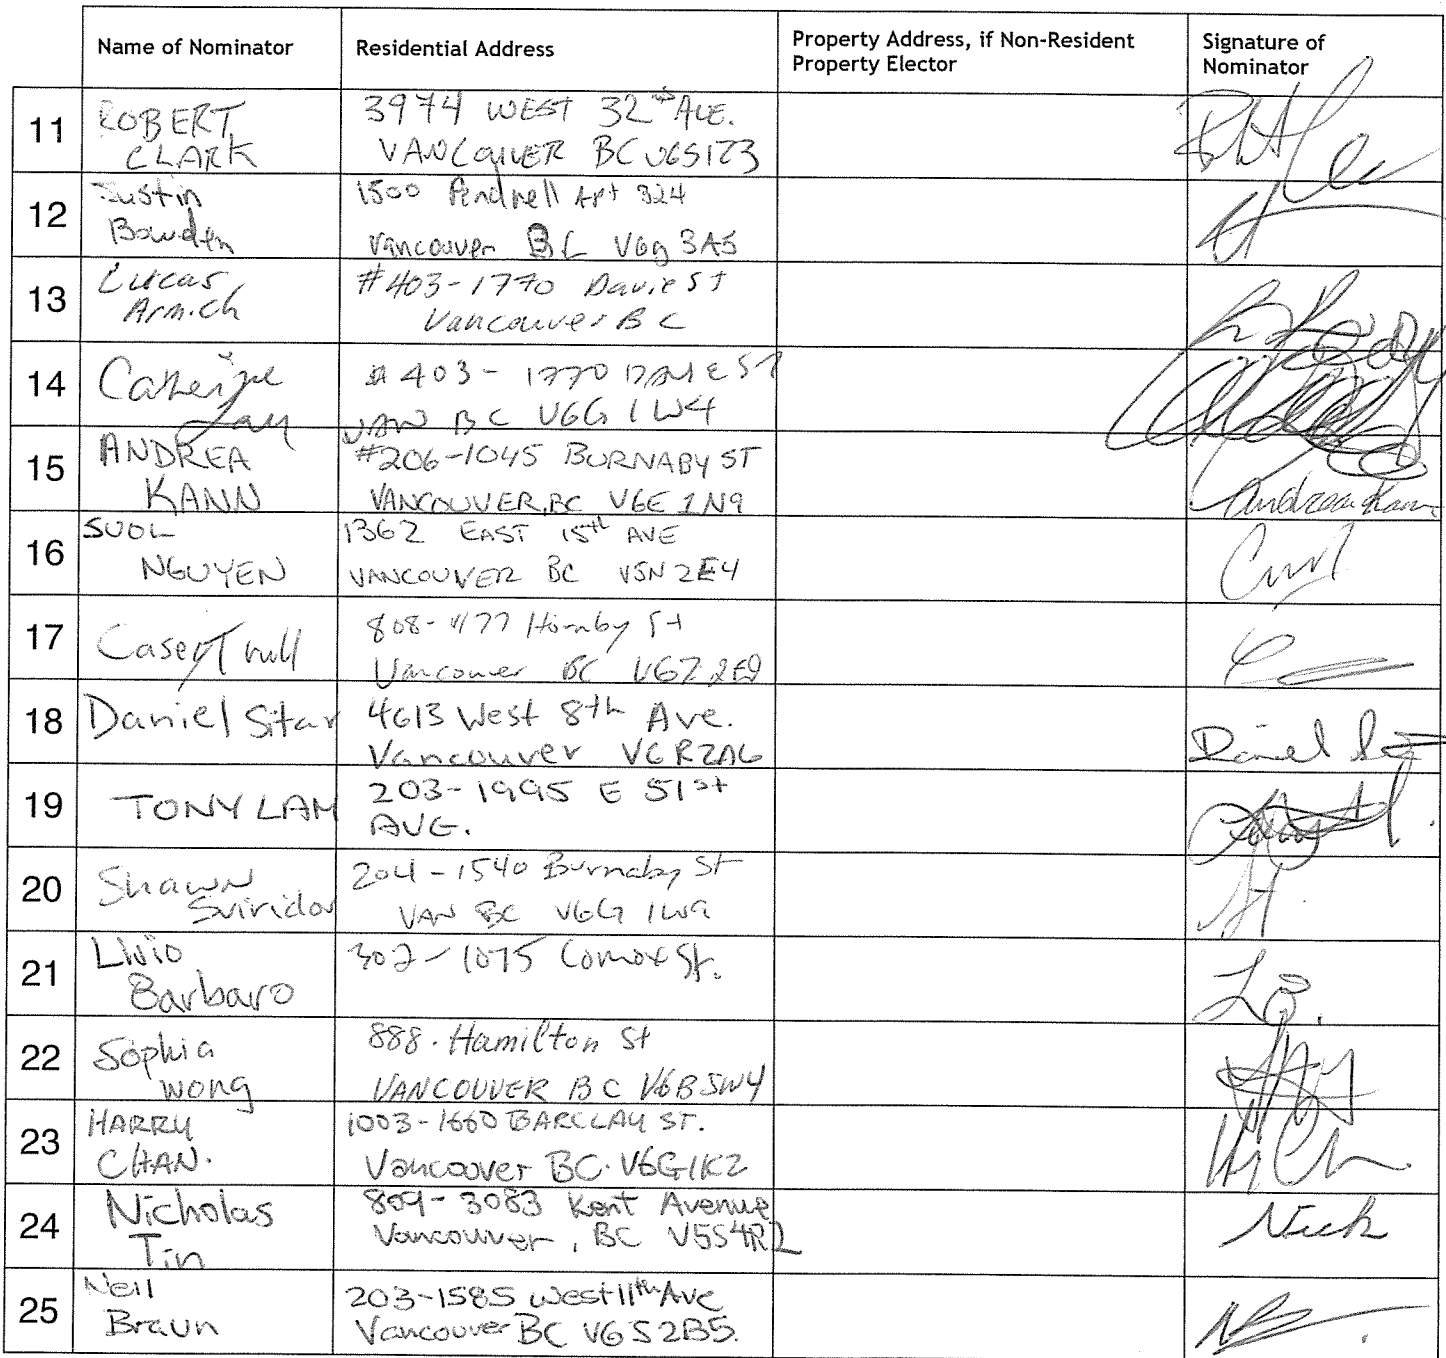 Name of Nominator
Residential Address
Property Address, if Non-Resident
Property Elector
Signature of
Nominator
11
ROBERT
CLARK
3974 WEST 32nd AVE.
VANCOUVER BC V6S1Z3
12
Justin
Bowden
1500 Pendrell Apt 324
Vancouver BC V6g 3A5
13
Lucas
Armich
#403-1770 Davie St
Vancouver BC
14
Catherine
#403-1770 DAVIE ST
VAN BC V6G 1W4
15
ANDREA
KANN
#206-1045 BURNABY ST
VANCOUVER, BC V6E 1N9
Andrea Kann
16
SUOL
NGUYEN
1362 EAST 15th AVE
VANCOUVER BC V5N 2E4
17
Casey Trull
808-1177 Hornby St
Vancouver BC V6Z 2E9
18
Daniel Sitar
4613 West 8th Ave.
Vancouver V6R2A6
Daniel
19
TONY LAM
203-1995 E 51st
AVE.
20
Shawn
Sviridov
204-1540 Burnaby St
VAN BC V6G 1W9
21
Livio
Barbaro
302-1075 Comox St.
22
Sophia
Wong
888. Hamilton St
VANCOUVER BC V6B5W4
23
HARRY
CHAN.
1003-1660 BARCLAY ST.
Vancouver BC. V6G1K2
24
Nicholas
Tin
809-3083 Kent Avenue
Vancouver, BC V5S4R2
Nick
25
Neil
Braun
203-1585 West 11th Ave
Vancouver BC V6S2B5.